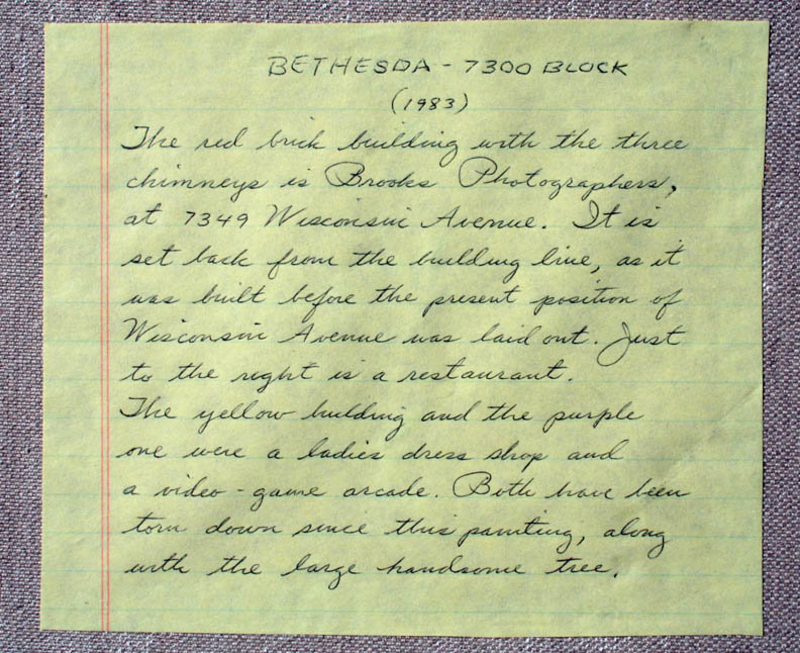 BETHESDA - 7300 BLOCK
(1983)
The red brick building with the three
chimneys is Brooks Photographers,
at 7349 Wisconsin Avenue. It is
set back from the building line, as it
was built before the present position of
Wisconsin Avenue was laid out. Just
to the right is a restaurant.
The yellow building and the purple
one were a ladies dress shop and
a video-game arcade. Both have been
torn down since this painting, along
with the large handsome tree.